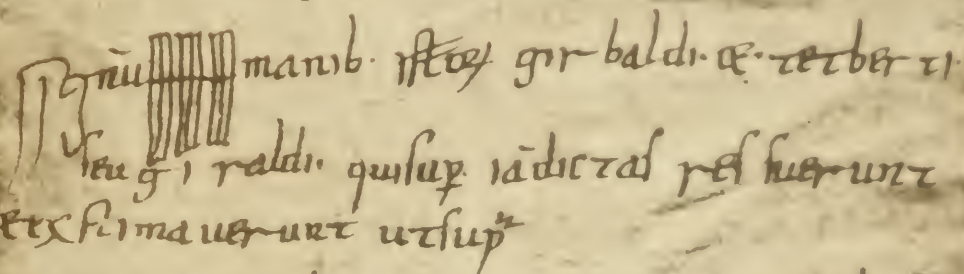 Signū manib. istoꝝ girbaldi. & tetberti.
seu giraldi. qui sup iā dictas res fuerunt
et x firmaverunt ut sup